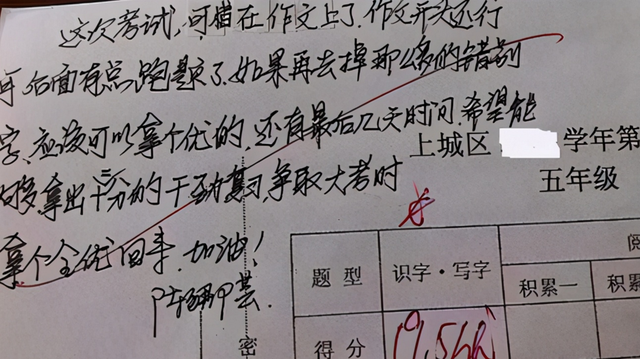 这次考试,可惜在作文上了.作文开头还行
可后面有点跑题了.如果再去掉那么多的错别
字,应该可以拿个优的,还有最后几天时间,希望能
够拿出十二分的干劲复习,争取大考时
拿个全优回来.加油!
上城区 学年第
五年级
题型 识字·写字 阅
积累一 积累
得分 19.5
密